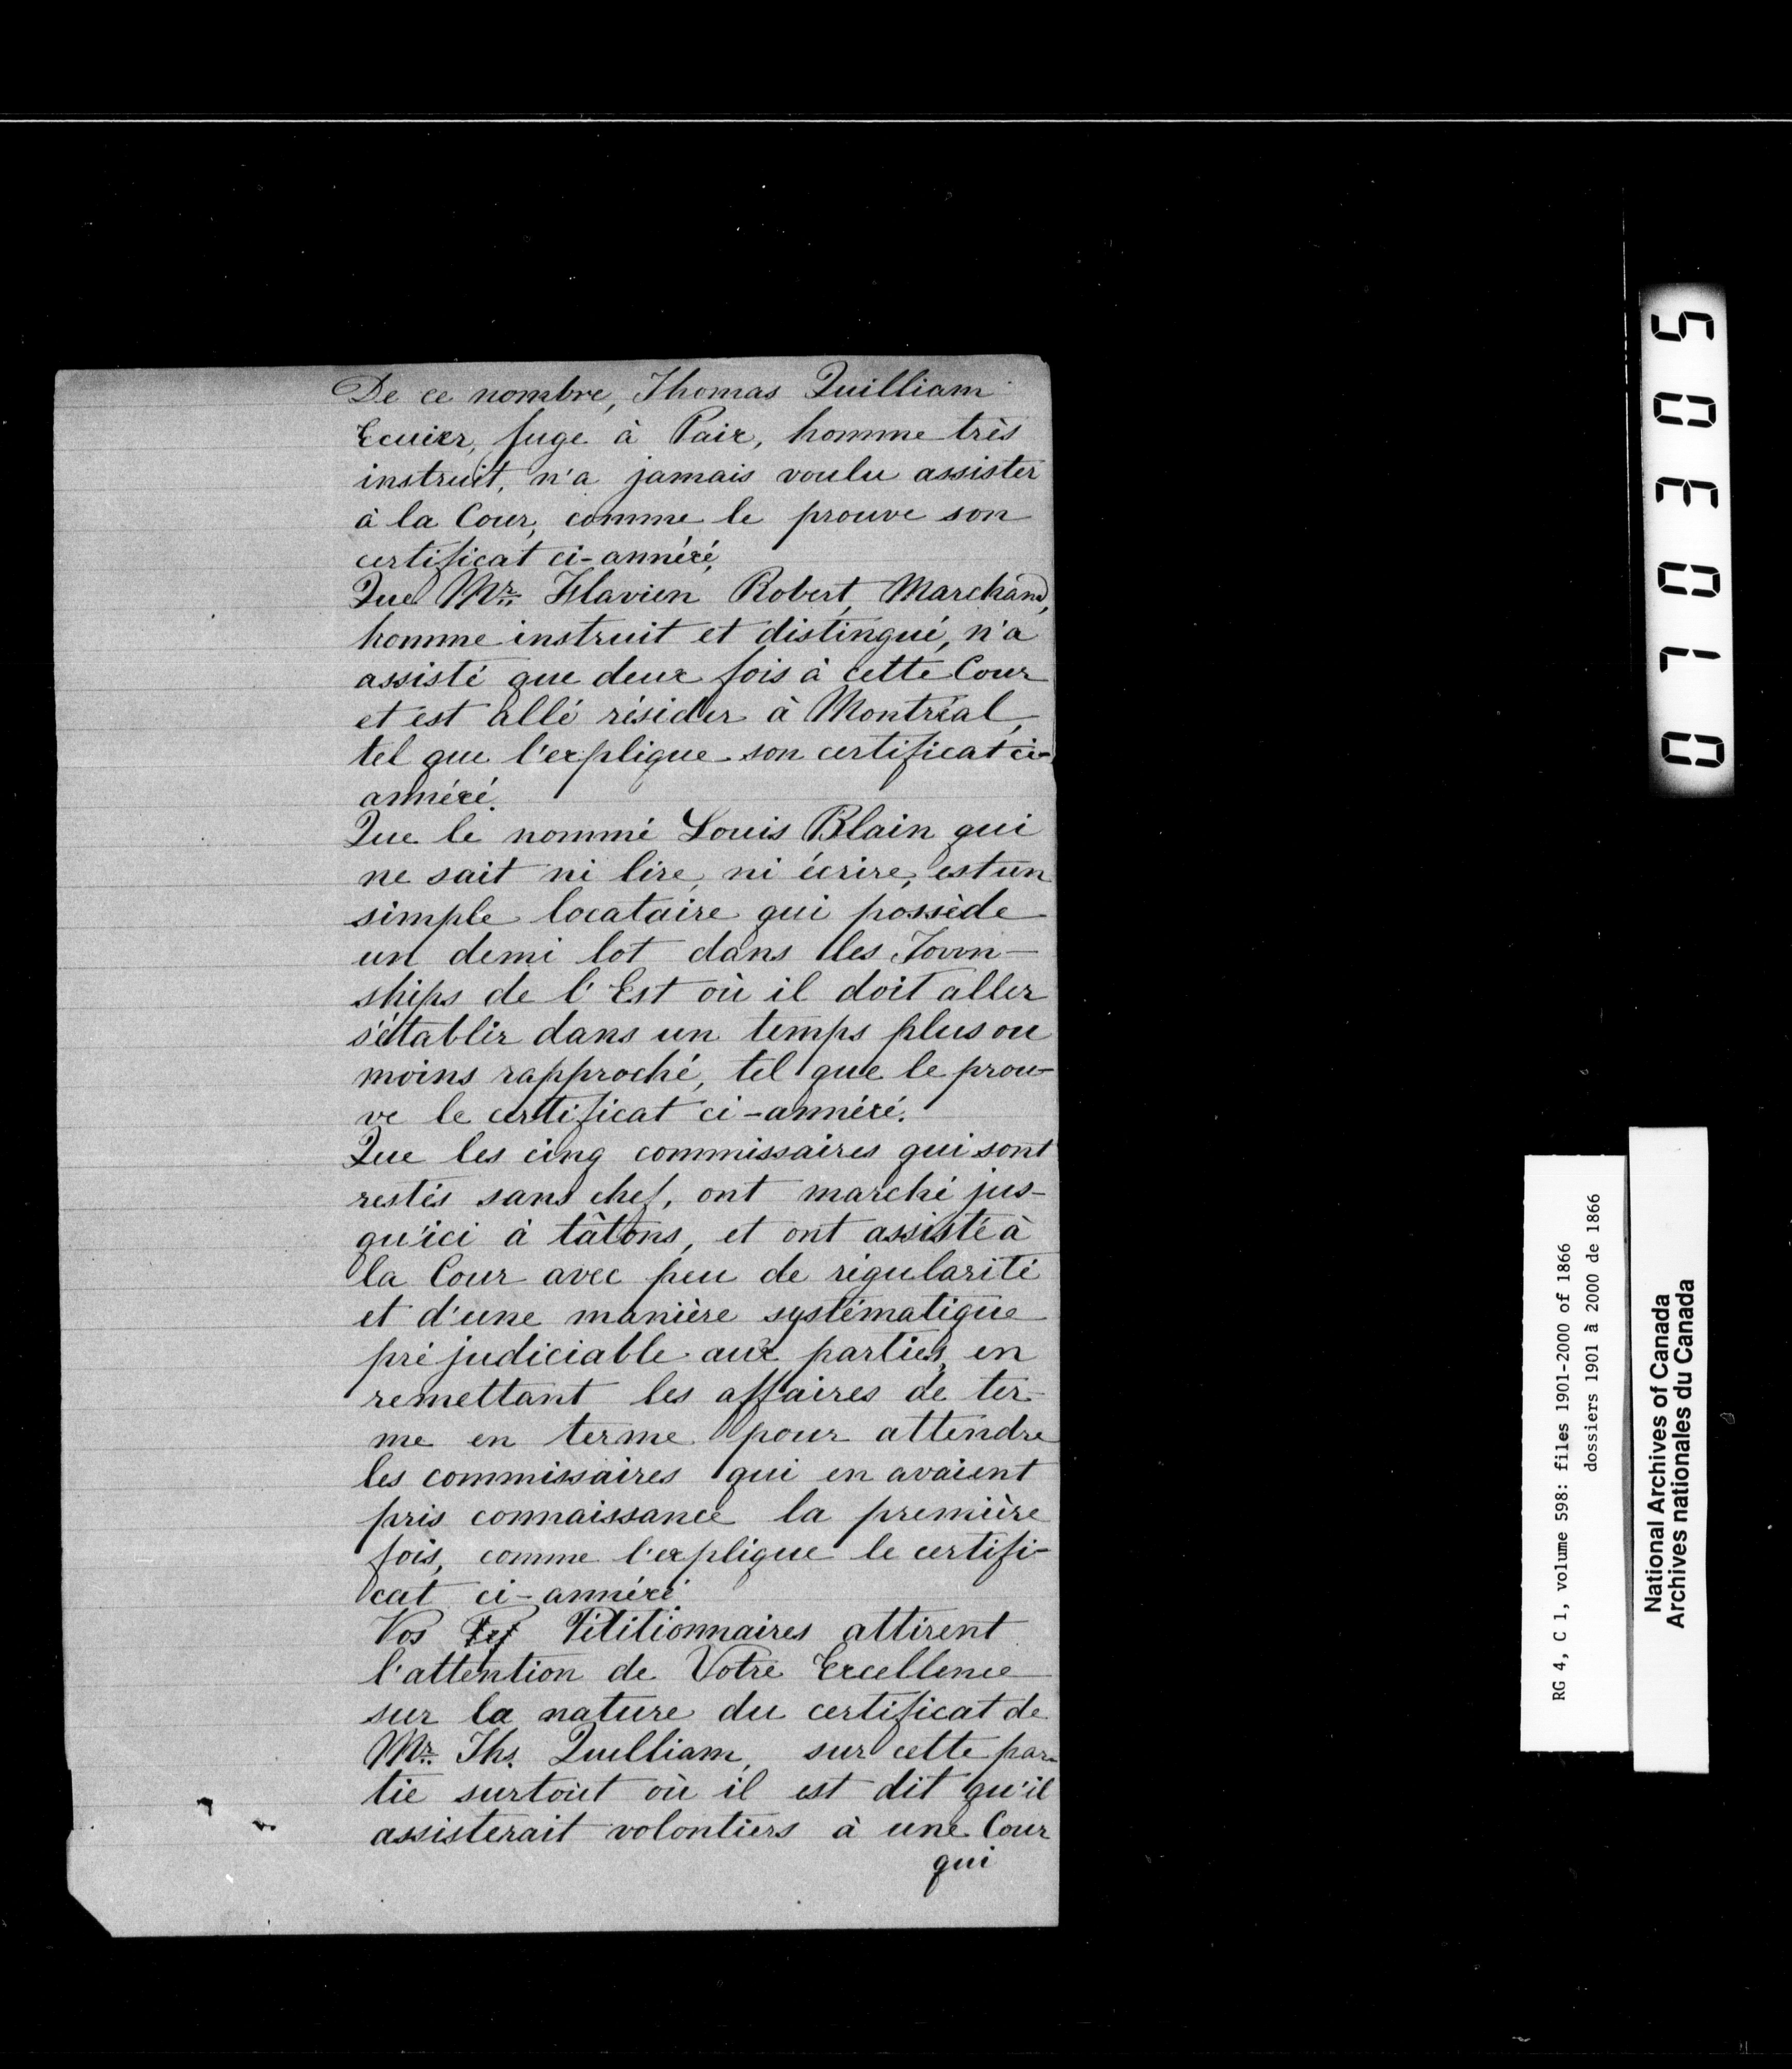 De ce nombre, Thomas Quilliam
Ecuier, Juge à Paix, homme très
instruit, n'a jamais voulu assister
à la Cour, comme le prouve son
certificat ci-annéxé,
Que Mr. Flavien Robert, Marchand,
homme instruit et distingué, n'a
assisté que deux fois à cette Cour
et est allé résider à Montréal,
tel que l'explique son certificat ci-
annéxé.
Que le nommé Louis Blain qui
ne sait ni lire, ni écrire, est un
simple locataire qui possède
un demi lot dans les Town-
ships de l'Est où il doit aller
s'établir dans un temps plus ou
moins rapproché, tel que le prou-
ve le certificat ci-annéxé.
Que les cinq commissaires qui sont
restés sans chef, ont marché jus-
qu'ici à tâtons, et ont assisté à
la Cour avec peu de régularité
et d'une manière systématique
préjudiciable aux parties, en
remettant les affaires de ter-
me en terme pour attendre
les commissaires qui en avaient
pris connaissance la première
fois, comme l'explique le certifi-
cat ci-annéxé
Vos Pétitionnaires attirent
l'attention de Votre Excellence
sur la nature du certificat de
Mr. Ths. Quelliam, sur cette par-
tie surtout où il est dit qu'il
assisterait volontiers à une Cour
qui
50310
RG 4, C 1, volume 598: files 1901-2000 of 1866
dossiers 1901 à 2000 de 1866
National Archives of Canada
Archives nationales du Canada